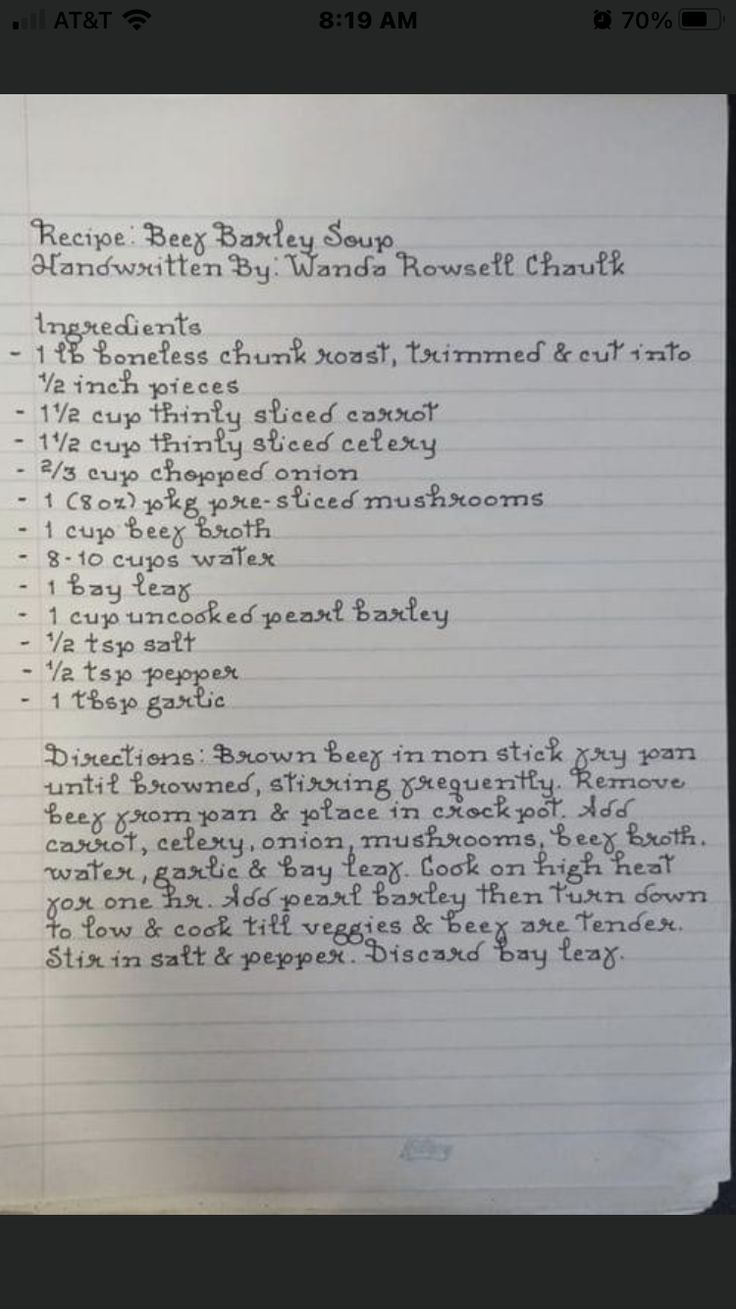 AT&T 8:19 AM 70%
Recipe: Beef Barley Soup
Handwritten By: Wanda Rowsell Chaulk
Ingredients
- 1 lb boneless chunk roast, trimmed & cut into
1/2 inch pieces
- 1 1/2 cup thinly sliced carrot
- 1 1/2 cup thinly sliced celery
- 2/3 cup chopped onion
- 1 (8oz) pkg pre-sliced mushrooms
- 1 cup beef broth
- 8-10 cups water
- 1 bay leaf
- 1 cup uncooked pearl barley
- 1/2 tsp salt
- 1/2 tsp pepper
- 1 tbsp garlic
Directions: Brown beef in non stick fry pan
until browned, stirring frequently. Remove
beef from pan & place in crock pot. Add
carrot, celery, onion, mushrooms, beef broth,
water, garlic & bay leaf. Cook on high heat
for one hr. Add pearl barley then turn down
to low & cook till veggies & beef are tender.
Stir in salt & pepper. Discard bay leaf.